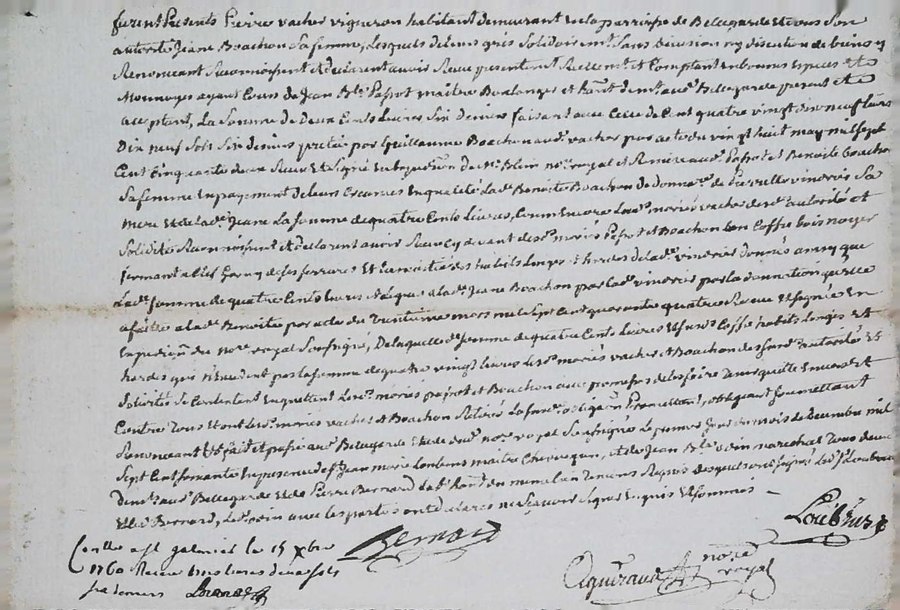 furent Presents Pierre vacher vigneron habitant demeurant en la parroisse de Bellegarde et de luy son
autorité Jeane Boachon sa femme, Lesquels de leurs grés solidairemt. sans division ny discution de biens y
Renonceant Reconnoissent et declarent avoir Receu presentemt. Reellemt. et Comptant en bonnes Espèces et de
Monnoyes ayant Cours de Jean Bte. Papot maitre Boulanger et hant. demt. aud. Bellegarde present et
acceptant, La Somme de Deux Cents Livres Six deniers faisant avec Celle de Cent quatre vingt dix neuf livres
Dix neuf Sols Six deniers pretée par Guillaume Boachon aud. vacher par acte du vingt huit may mil sept
Cent Cinquante deux Receu et Signé en Expedition de Me. Blein nore. royal et Remise aud. Papot et Benoite Boachon
Sa femme en payement de leurs Creances En qualité lad. Benoite Boachon de donnare. de Pierrette vinoris Sa
Mere et de lad. Jeane La somme de quatre Cents Livres, Comm'encore Lesd. mariés vacher de Ne. autorité et
Solidité Reconnoissent et declarent avoir Receu Cy devant desd. mariés Papot et Boachon Un Coffre bois noyer
fermant a Clef Garny de ses ferrures Et Les habits Linges et hardes de lad. vinoris donnés ainsy que
Lad. somme de quatre Cents livres a lad. Jeane Boachon par lad. vinoris par la donnation qu'elle
a faite a lad. Benoite par acte du Trentieme mars mil Sept Cent quarante quatre Receu Et Signée En
Expedition du nore. royal Soussigné, De laquelle de somme de quatre Cents Livres Et susd. Coffre habits Linges et
hardes par la somme de quatre vingt livres Lesd. mariés vacher et Boachon de susd. autorité et
Solidité Se Contentent En quittent Lesd. mariés Papot et Boachon avec promesse de les faire Tenir quitte Envers et
Contre Tous Et ont Lesd. mariés vacher et Boachon Promettant, obligeant Soumettant
Renonceant Et fait et passé aud. Bellegarde Etude dud. nore. royal Soussigné Le premier Jour du mois de decembre mil
Sept Cent soixante En presence de Jean marie Loubens maitre Chirurgien, et de Jean Bte. marechal Tous deux
Demt. aud. Bellegarde et de Pierre Bernard Temoins Requis desquels ont Signé Led. Sr. Loubens
Et Led. Bernard, avec les parties ont declaré ne Sçavoir Signer Enquis Et Sommés
Bernard
Loubens
Conllé a St. galmier le 15 xbre
1760 Receu Six deniers
nore. royal